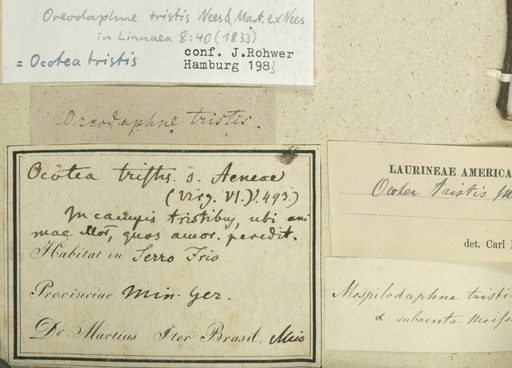 Oreodaphne tristis Nees & Mart. ex Nees
in Linnaea 8:40 (1833)
= Ocotea tristis
conf. J.Rohwer
Hamburg 1983
Oreodaphne tristis.
Ocotea tristis. s. Aeneae
(Virg. VI. V. 493.)
In campis tristibus, ubi ani
mae quos amor. peredit.
Habitat in Serro Frio
Provinciae Min. Ger.
Dr Martius Iter Brasil. Maio
LAURINEAE AMERICA
Ocotea tristis
det. Carl
Mespilodaphne tristi
α subacuta Meiss